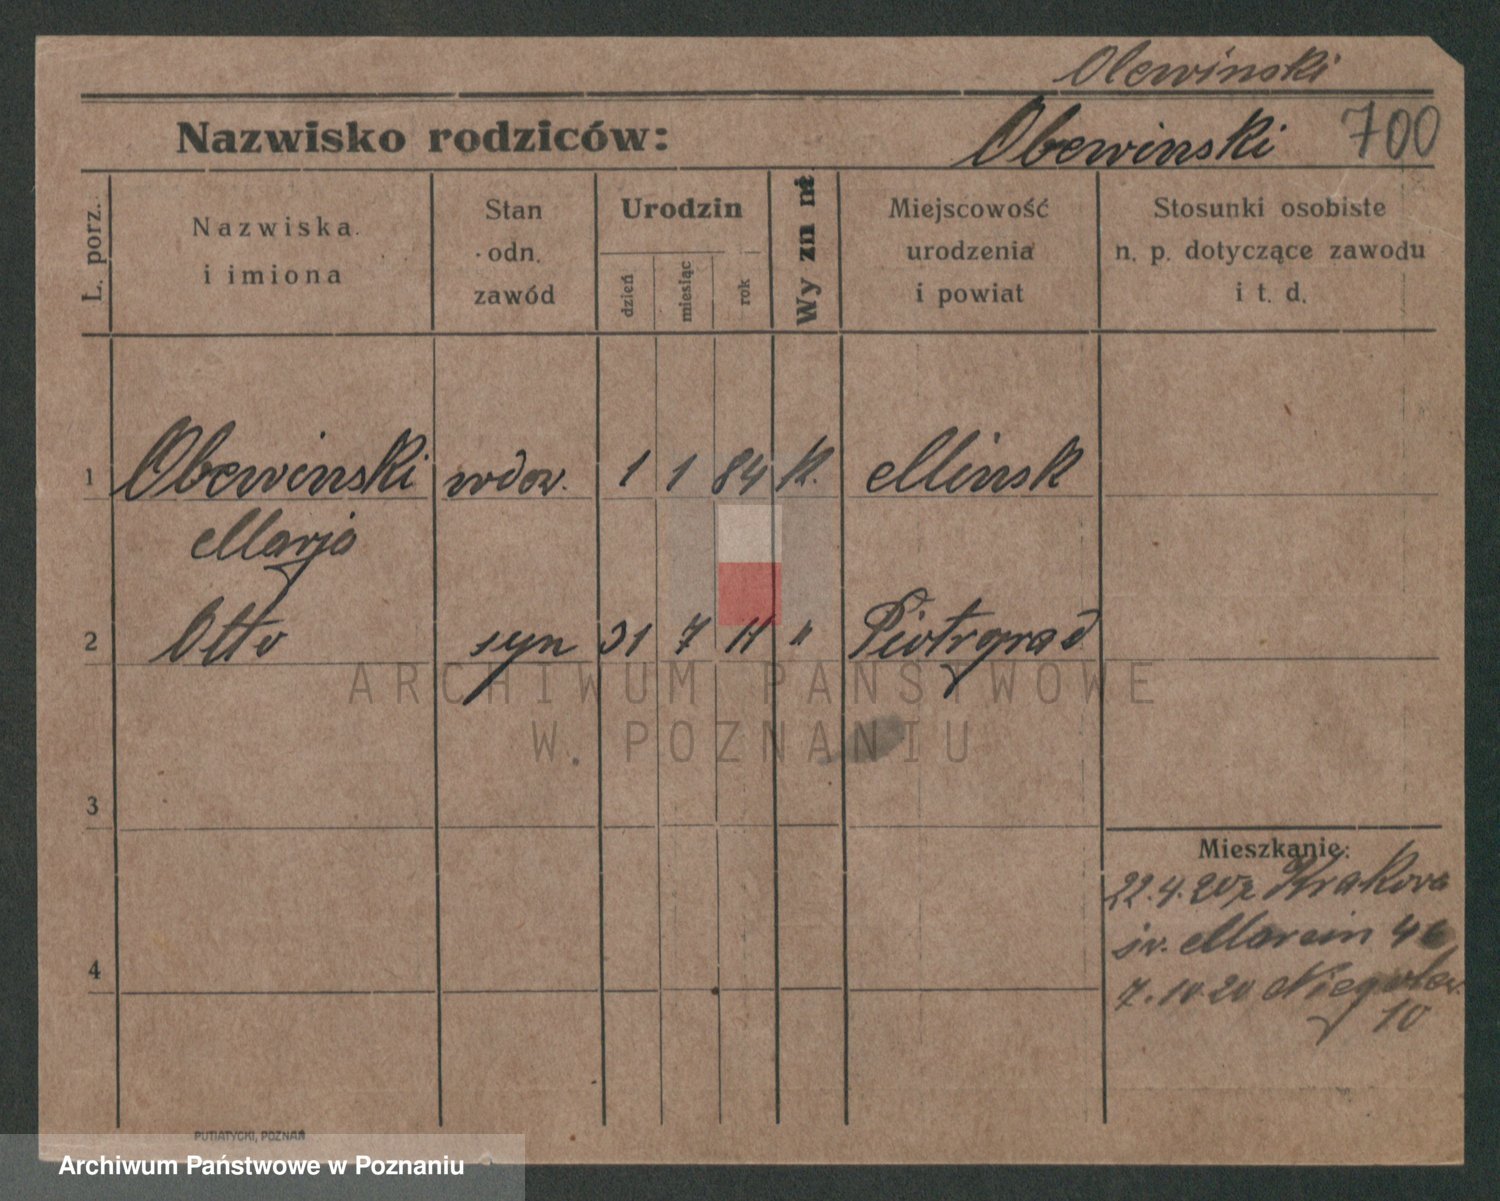 Olewinski
Nazwisko rodziców: Obewinski 700
L. porz.
Nazwiska i imiona
Stan odn. zawód
Urodzin
dzień
miesiąc
rok
Wyznnie
Miejscowość urodzenia i powiat
Stosunki osobiste n. p. dotyczące zawodu i t. d.
1 Obewinski wdow. 1 1 84 k. Minsk
Marja
2 Otto syn 31 7 11 " Piotrgrad
3
4
Mieszkanie:
22.4.20 z Krakowa
św. Marcin
7.10.20 Niegolew.
10
PUTIATYCKI, POZNAŃ
ARCHIWUM PAŃSTWOWE
W POZNANIU
Archiwum Państwowe w Poznaniu